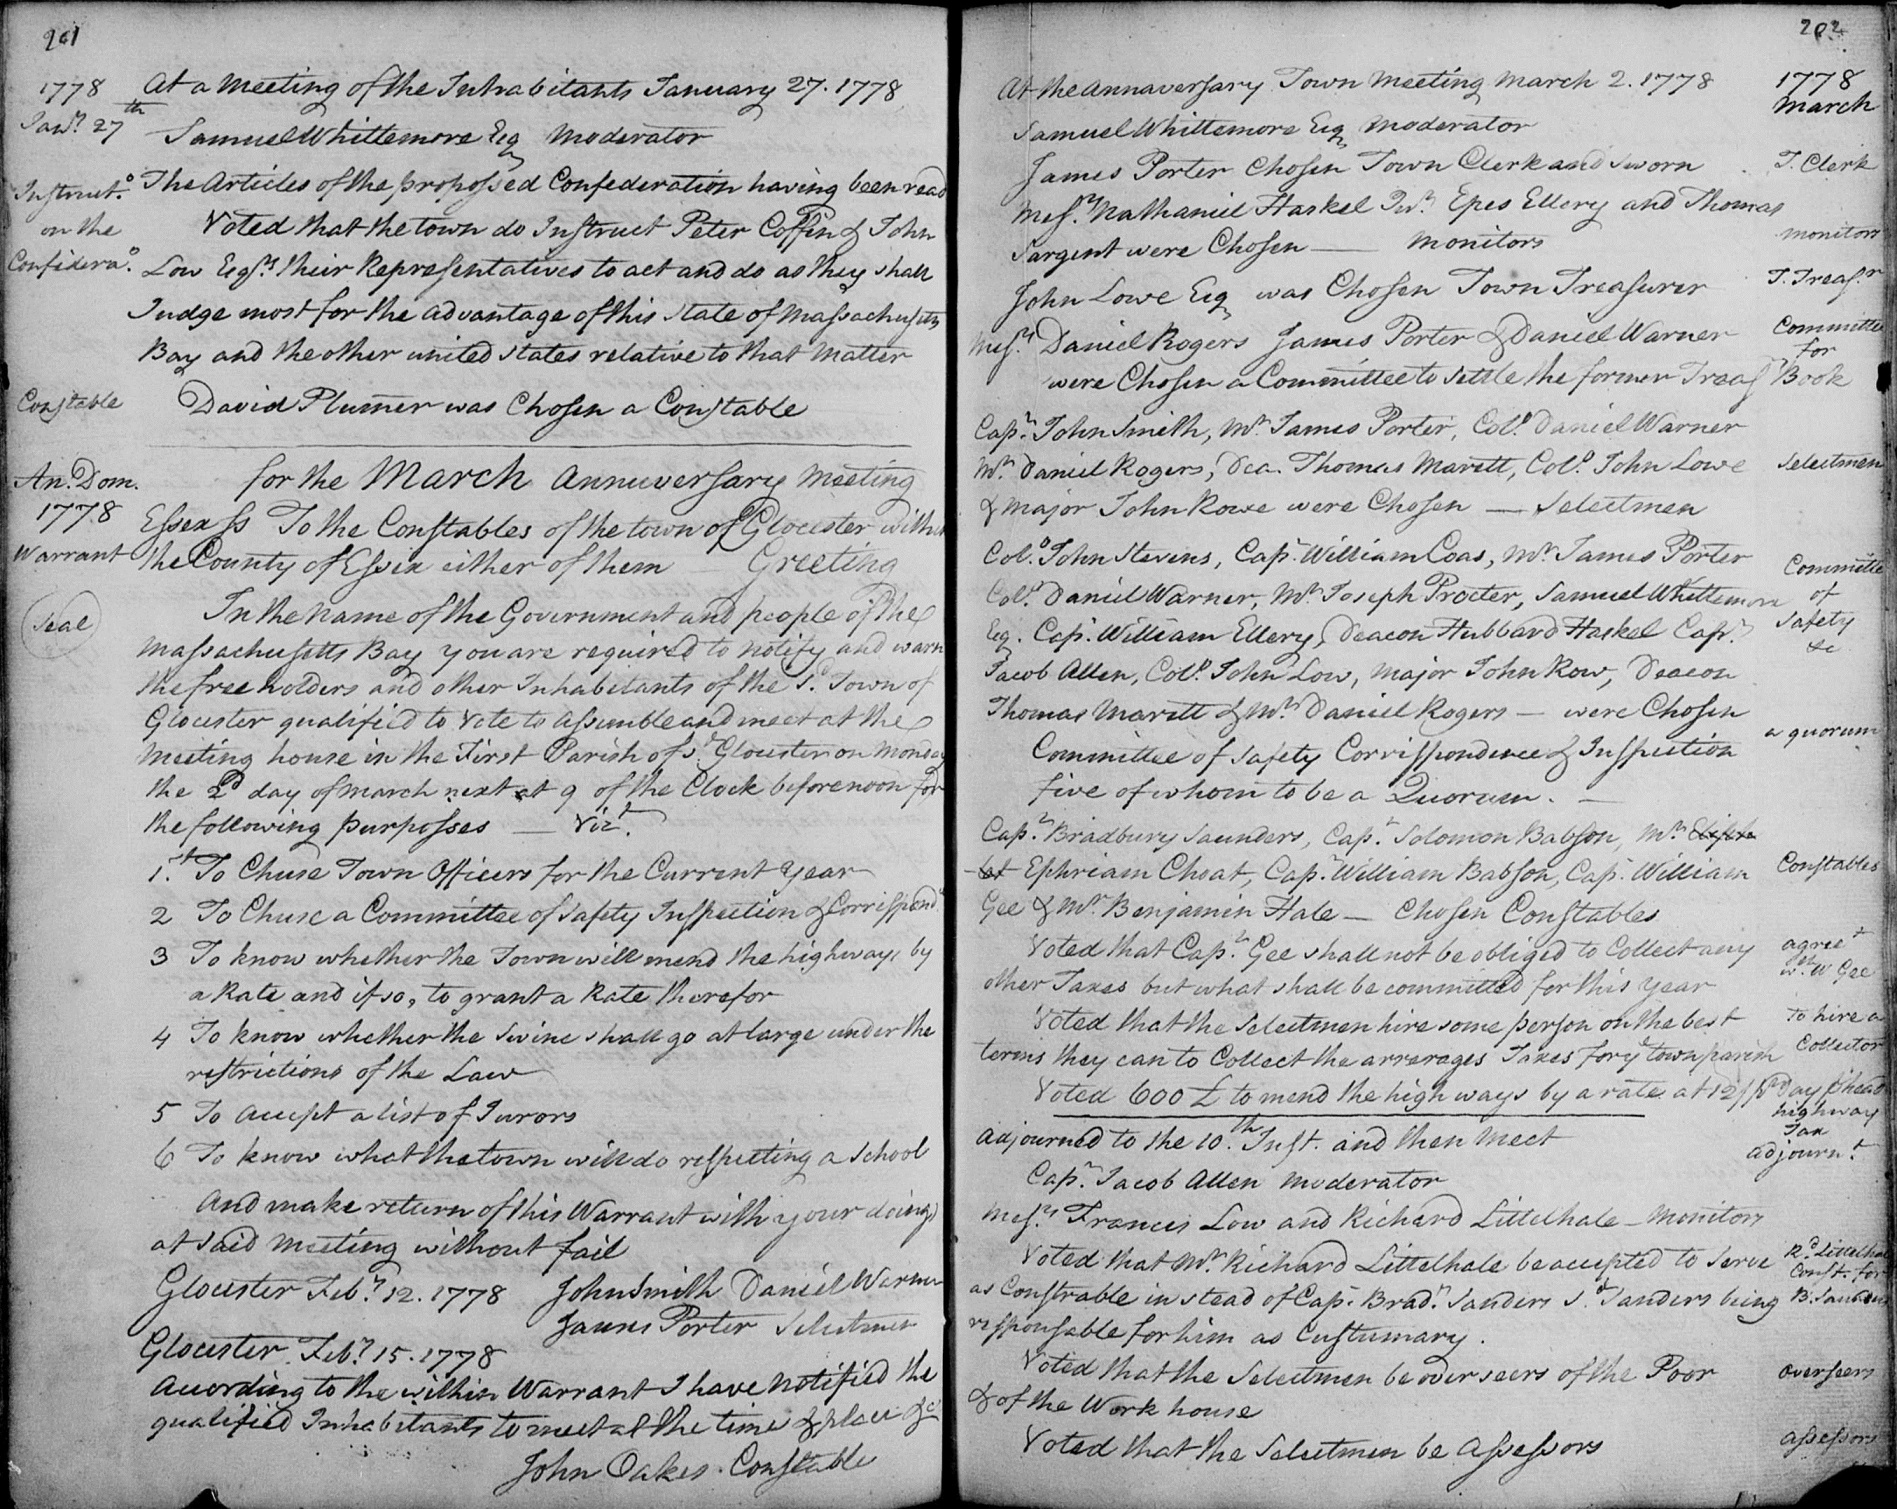 201
1778 At a Meeting of the Inhabitants January 27. 1778
Janry 27th Samuel Whittemore Esq Moderator
Instructo. The Articles of the proposed Confederation having been read
on the Voted that the town do Instruct Peter Coffin & John
Confidera.o Low Esqrs their Representatives to act and do as they shall
Judge most for the advantage of this State of Massachusetts
Bay and the other united States relative to that Matter
Constable David Plumer was Chosen a Constable
An. Dom. for the March Annuversary Meeting
1778 Essex ss To the Constables of the town of Glocester within
Warrant the County of Essex either of them Greeting
Seal In the name of the Government and people of the
Massachusetts Bay you are required to notify and warn
the free holders and other Inhabitants of the sd. Town of
Glocester qualified to Vote to Assemble and meet at the
Meeting house in the First Parish of sd Glocester on Monday
the 2d day of March next at 9 of the Clock beforenoon for
the following purposses — Vizt.
1.st To Chuse Town Officers for the Current year
2 To Chuse a Committee of Safety Inspection & Corrispondce
3 To know whether the Town will mend the highways by
a Rate and if so, to grant a Rate therefor
4 To know whether the Swine shall go at large under the
restrictions of the Law
5 To accept a list of Jurors
6 To know what the town will do respecting a School
And make return of this Warrant with your doings
at said Meeting without fail
Glocester Feby 12. 1778 John Smith Daniel Warner
James Porter Selectmen
Glocester Feby 15. 1778
Acording to the within Warrant I have notified the
qualified Inhabitants to meet at the time & place &c
John Oakes. Constable
202
At the annaversary Town Meeting March 2. 1778 1778
March
Samuel Whittemore Esq Moderator
James Porter Chosen Town Clerk and Sworn T. Clerk
Messrs Nathaniel Haskel Junr Epes Ellery and Thomas
Sargent were Chosen — Monitors monitors
John Lowe Esq was Chosen Town Treasurer T. Treasr
Messrs Daniel Rogers James Porter & Daniel Warner Committee
for
were Chosen a Committee to Settle the former Treas Book
Capn. John Smith, Mr James Porter, Colo. Daniel Warner
Mr. Daniel Rogers, Dea. Thomas Marett, Colo John Lowe Selectmen
& Major John Rowe were Chosen — Selectmen
Colo. John Stevens, Capn William Coas, Mr James Porter Committe
Colo. Daniel Warner, Mr Joseph Procter, Samuel Whittemore of
Esq. Capn. William Ellery, Deacon Hubbard Haskel Capn Safety
&c
Jacob Allen, Colo. John Low, Major John Row, Deacon
Thomas Marett & Mr Daniel Rogers — were Chosen
a quorum
Committee of Safety Corrisspondence & Inspection
five of whom to be a Quorum. —
Capn. Bradbury Saunders, Capn. Solomon Babson, Mr Elipha
let Ephriam Choat, Capn. William Babson, Capn. William Constables
Gee & Mr. Benjamin Hale — Chosen Constables
Voted that Capn. Gee shall not be obliged to Collect any agreet
other Taxes but what shall be committed for this year wth. W Gee
Voted that the Selectmen hire some person on the best to hire a
terms they can to Collect the arrerages Taxes for ye town parish Collector
Voted 600 £ to mend the high ways by a rate at 12/ pr Day pr head
highway
Tax
Adjourned to the 10.th Inst. and then Meet adjournt.
Capn. Jacob Allen Moderator
Messrs Frances Low and Richard Littelhale — Monitors
Voted that Mr. Richard Littelhale be accepted to Serve Rd. Littelhale
as Constrable in stead of Capn. Bradry Sanders sd Sanders being Const. for
B. Saunders
responsable for him as Custumary.
Voted that the Selectmen be over seers of the Poor overseers
& of the Work house
Voted that the Selectmen be Assessors assessors